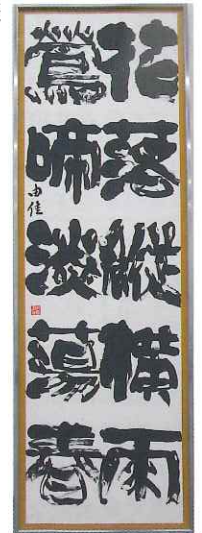 花落縱横雨
鶯啼淡蕩春
由佳